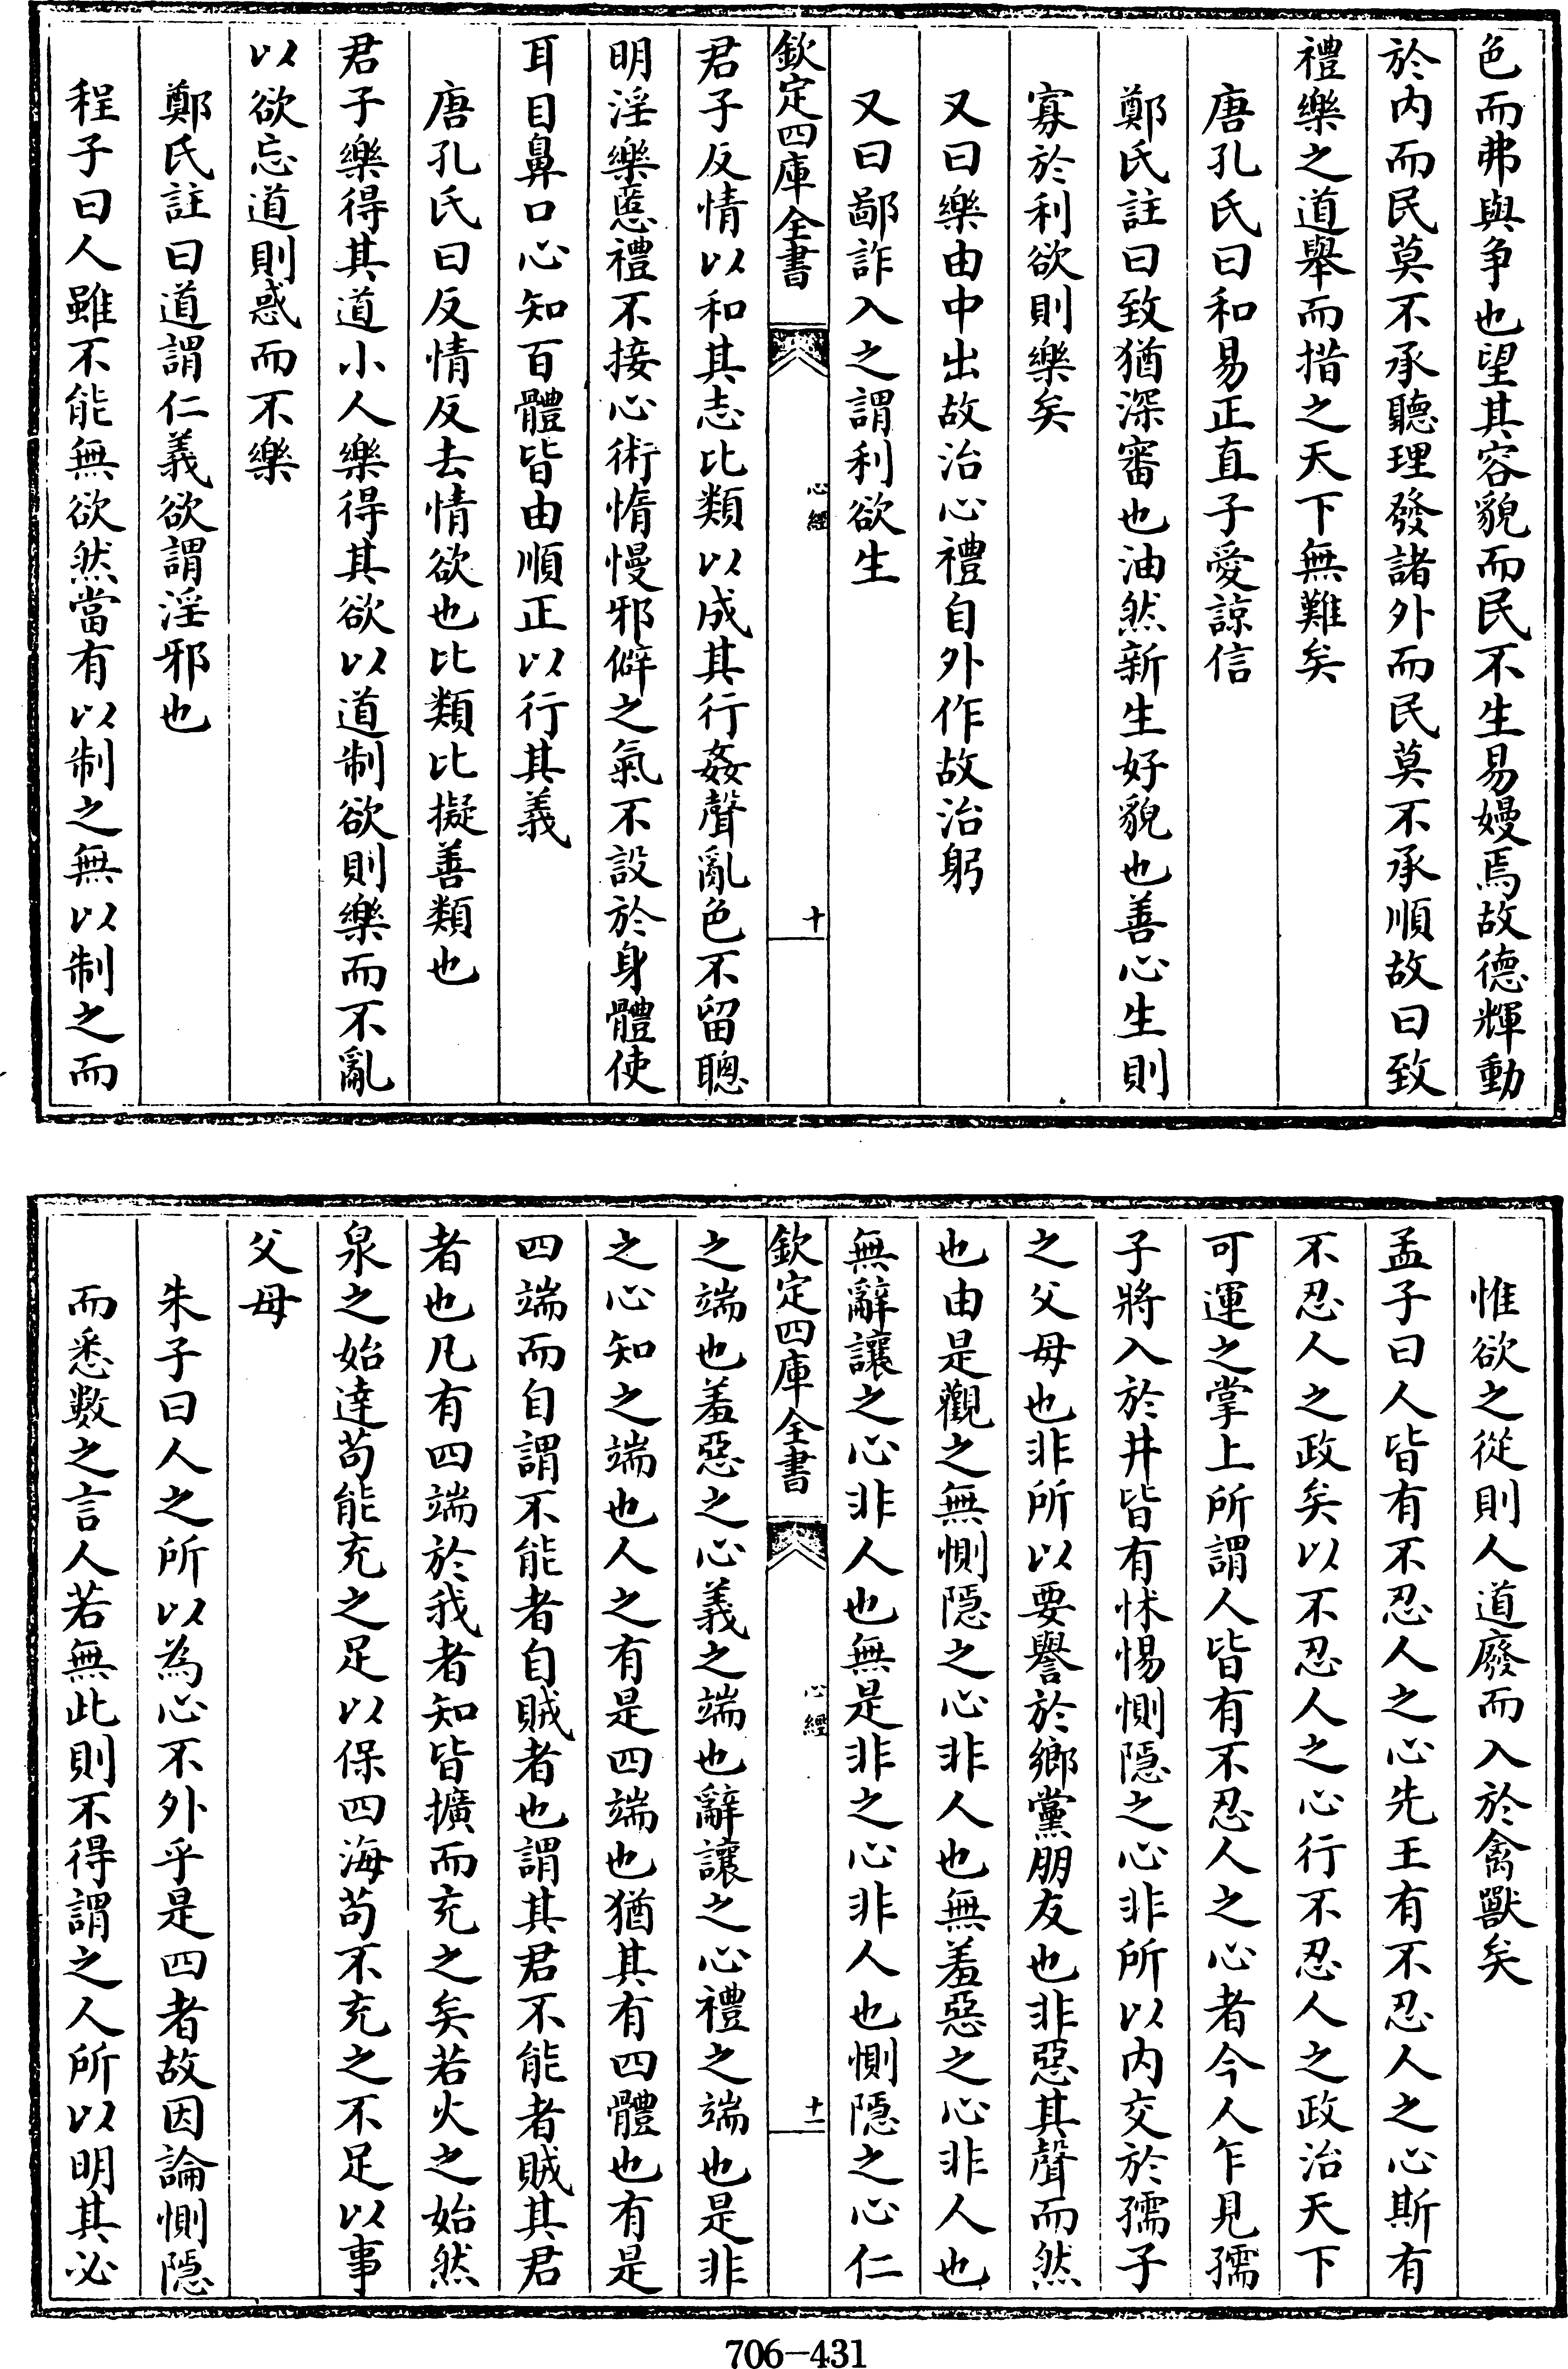 色而弗與争也望其容貌而民不生易嫚焉故德輝動
於内而民莫不承聽理發諸外而民莫不承順故曰致
禮樂之道舉而措之天下無難矣
唐孔氏曰和易正直子愛諒信
鄭氏註曰致猶深審也油然新生好貌也善心生則
寡於利欲則樂矣
又曰樂由中出故治心禮自外作故治躬
又曰鄙詐入之謂利欲生
欽定四庫全書
心經
十
君子反情以和其志比類以成其行姦聲亂色不留聰
明淫樂慝禮不接心術惰慢邪僻之氣不設於身體使
耳目鼻口心知百體皆由順正以行其義
唐孔氏曰反情反去情欲也比類比擬善類也
君子樂得其道小人樂得其欲以道制欲則樂而不亂
以欲忘道則惑而不樂
鄭氏註曰道謂仁義欲謂淫邪也
程子曰人雖不能無欲然當有以制之無以制之而
惟欲之從則人道廢而入於禽獸矣
孟子曰人皆有不忍人之心先王有不忍人之心斯有
不忍人之政矣以不忍人之心行不忍人之政治天下
可運之掌上所謂人皆有不忍人之心者今人乍見孺
子將入於井皆有怵惕惻隠之心非所以内交於孺子
之父母也非所以要譽於鄉黨朋友也非惡其聲而然
也由是觀之無惻隠之心非人也無羞惡之心非人也
無辭讓之心非人也無是非之心非人也惻隠之心仁
欽定四庫全書
心經
十一
之端也羞惡之心義之端也辭讓之心禮之端也是非
之心知之端也人之有是四端也猶其有四體也有是
四端而自謂不能者自賊者也謂其君不能者賊其君
者也凡有四端於我者知皆擴而充之矣若火之始然
泉之始達苟能充之足以保四海苟不充之不足以事
父母
朱子曰人之所以為心不外乎是四者故因論惻隠
而悉數之言人若無此則不得謂之人所以明其必
706-431